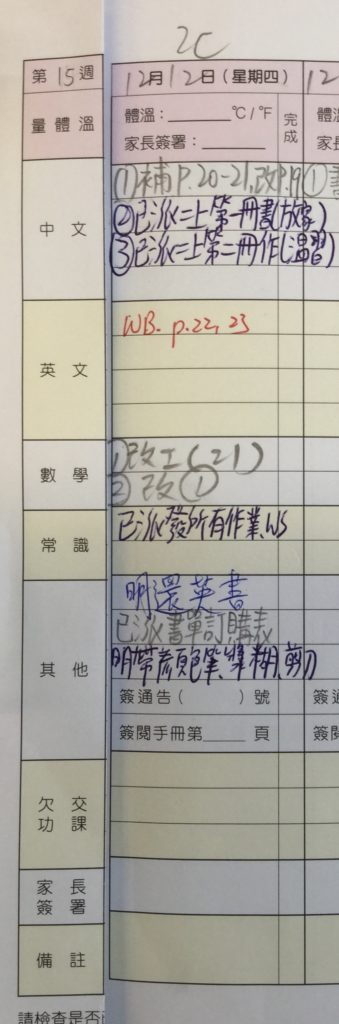 2C
第 15 週 12月12日 (星期四) 12
量 體 溫 體溫：______ °C/°F 完成 體
家長簽署：______ 家
中 文 ①補P.20-21,改P.19 ①
②已派二上第一冊書(放家)
③已派二上第二冊作(溫習)
英 文 WB. p.22, 23
數 學 ①改工(21)
②改①
常 識 已派發所有作業、WS
其 他 明還英書
已派書單訂購表
明帶顏色筆、漿糊、剪刀
簽通告( )號 簽通
簽閱手冊第____ 頁 簽閱
欠 交
功 課
家 長
簽 署
備 註
請檢查是否